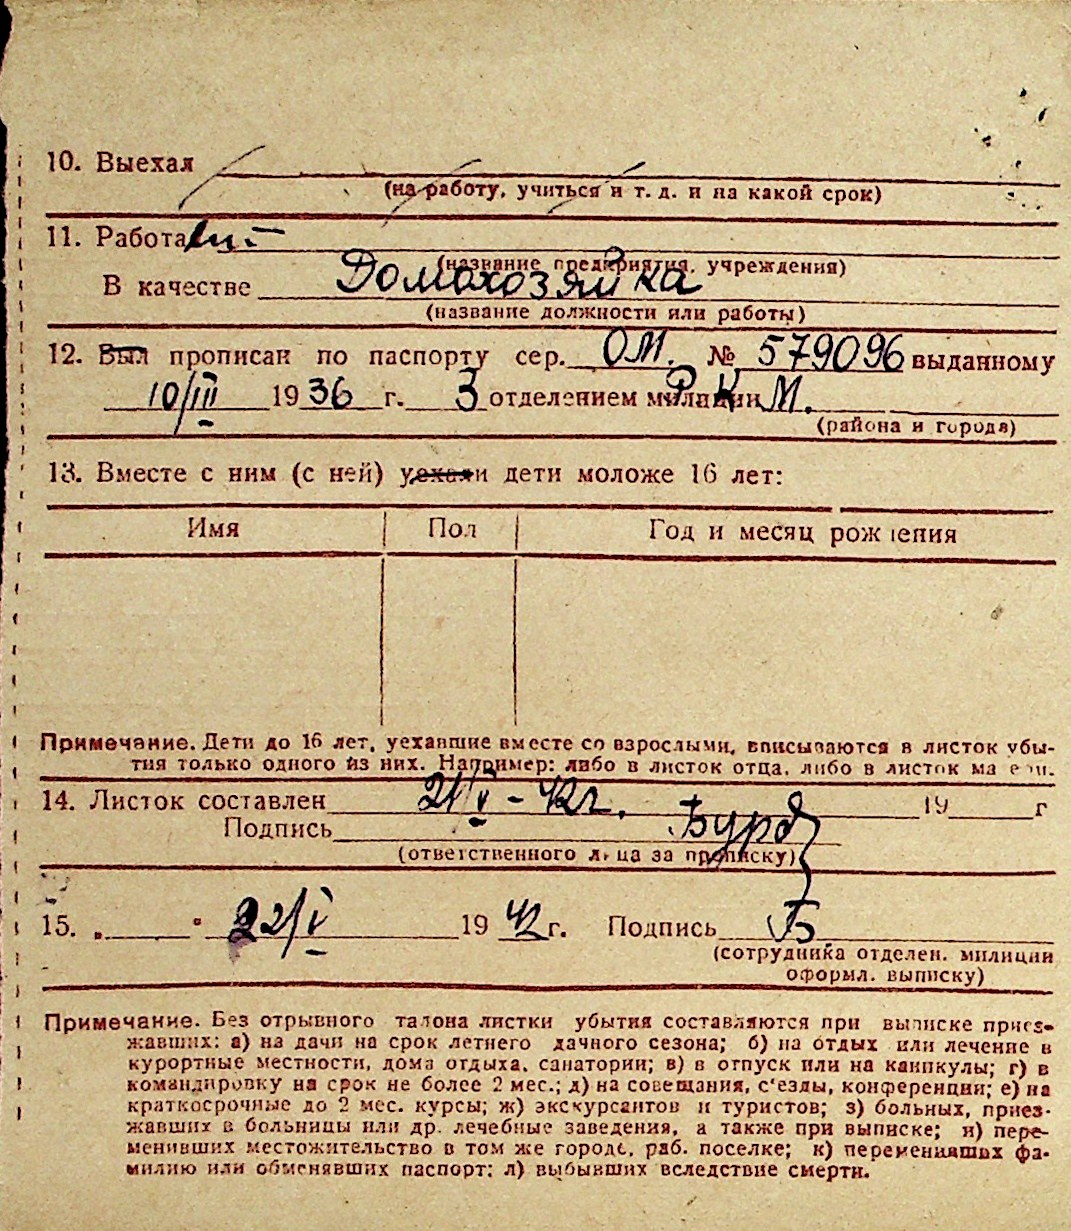 10. Выехал
(на работу, учиться и т. д. и на какой срок)
11. Работал
(название предприятия, учреждения)
В качестве Домохозяйка
(название должности или работы)
12. Был прописан по паспорту сер. ОМ. № 579096 выданному
10/III 1936 г. 3 отделением милиции Р.К.М.
(района и города)
13. Вместе с ним (с ней) уехали дети моложе 16 лет:
Имя Пол Год и месяц рождения
Примечание. Дети до 16 лет, уехавшие вместе со взрослыми, вписываются в листок убы-
тия только одного из них. Например: либо в листок отца, либо в листок матери.
14. Листок составлен 21/V - 42 г. 19 г
Подпись
(ответственного лица за прописку)
15. „ " 22/V 19 42 г. Подпись Б
(сотрудника отделен. милиции
оформл. выписку)
Примечание. Без отрывного талона листки убытия составляются при выписке приез-
жавших: а) на дачи на срок летнего дачного сезона; б) на отдых или лечение в
курортные местности, дома отдыха, санатории; в) в отпуск или на каникулы; г) в
командировку на срок не более 2 мес.; д) на совещания, с'езды, конференции; е) на
краткосрочные до 2 мес. курсы; ж) экскурсантов и туристов; з) больных, приез-
жавших в больницы или др. лечебные заведения, а также при выписке; и) пере-
менивших местожительство в том же городе, раб. поселке; к) переменивших фа-
милию или обменявших паспорт; л) выбывших вследствие смерти.